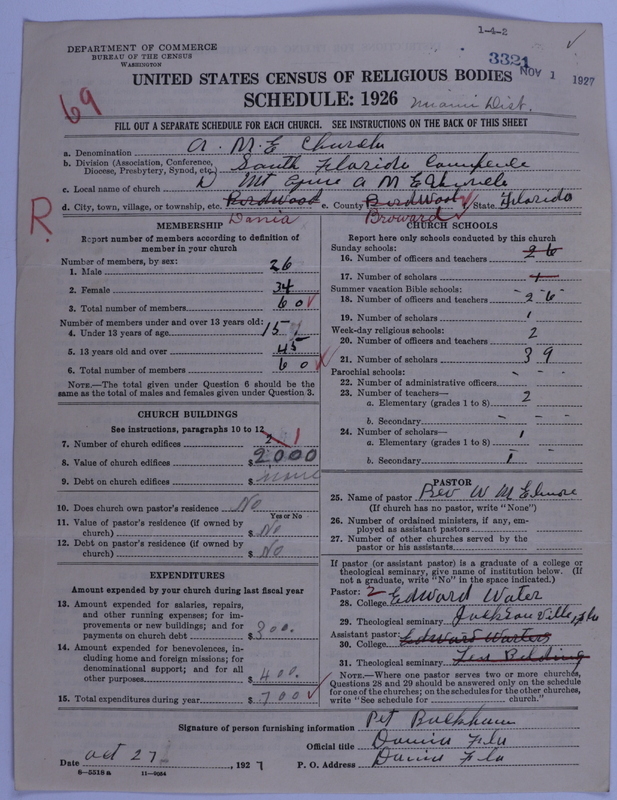 1-4-2
DEPARTMENT OF COMMERCE
BUREAU OF THE CENSUS
WASHINGTON
3321
NOV 1 1927
UNITED STATES CENSUS OF RELIGIOUS BODIES
SCHEDULE: 1926 Miami Dist.
69
FILL OUT A SEPARATE SCHEDULE FOR EACH CHURCH. SEE INSTRUCTIONS ON THE BACK OF THIS SHEET
a. Denomination A. M. E Church
b. Division (Association, Conference, Diocese, Presbytery, Synod, etc.) South Florida
c. Local name of church Mt A M E Church
d. City, town, village, or township, etc. Dania e. County Broward State Florida
R.
MEMBERSHIP
Report number of members according to definition of
member in your church
Number of members, by sex:
1. Male 26
2. Female 34
3. Total number of members 60
Number of members under and over 13 years old:
4. Under 13 years of age 15
5. 13 years old and over 45
6. Total number of members 60
NOTE.—The total given under Question 6 should be the
same as the total of males and females given under Question 3.
CHURCH BUILDINGS
See instructions, paragraphs 10 to 12
7. Number of church edifices 1
8. Value of church edifices $ 2000
9. Debt on church edifices $ none
10. Does church own pastor's residence? No
Yes or No
11. Value of pastor's residence (if owned by
church) $ No
12. Debt on pastor's residence (if owned by
church) $ No
EXPENDITURES
Amount expended by your church during last fiscal year
13. Amount expended for salaries, repairs,
and other running expenses; for im-
provements or new buildings; and for
payments on church debt $ 300.
14. Amount expended for benevolences, in-
cluding home and foreign missions; for
denominational support; and for all
other purposes $ 400.
15. Total expenditures during year $ 700
CHURCH SCHOOLS
Report here only schools conducted by this church
Sunday schools:
16. Number of officers and teachers 26
17. Number of scholars 1
Summer vacation Bible schools:
18. Number of officers and teachers 26
19. Number of scholars 1
Week-day religious schools:
20. Number of officers and teachers 2
21. Number of scholars 39
Parochial schools:
22. Number of administrative officers
23. Number of teachers—
a. Elementary (grades 1 to 8) 2
b. Secondary
24. Number of scholars—
a. Elementary (grades 1 to 8) 1
b. Secondary 1
PASTOR
25. Name of pastor Rev W M Elmore
(If church has no pastor, write "None")
26. Number of ordained ministers, if any, em-
ployed as assistant pastors
27. Number of other churches served by the
pastor or his assistants
If pastor (or assistant pastor) is a graduate of a college or
theological seminary, give name of institution below. (If
not a graduate, write "No" in the space indicated.)
Pastor: 2
28. College Edward Water
29. Theological seminary Jacksonville, Fla
Assistant pastor:
30. College Edward Waters
31. Theological seminary
NOTE.—Where one pastor serves two or more churches,
Questions 28 and 29 should be answered only on the schedule
for one of the churches; on the schedules for the other churches,
write "See schedule for church."
Signature of person furnishing information Pet
Official title Dania Fla
Date Oct 27, 1927 P. O. Address Dania Fla
8—5518 a 11—9034